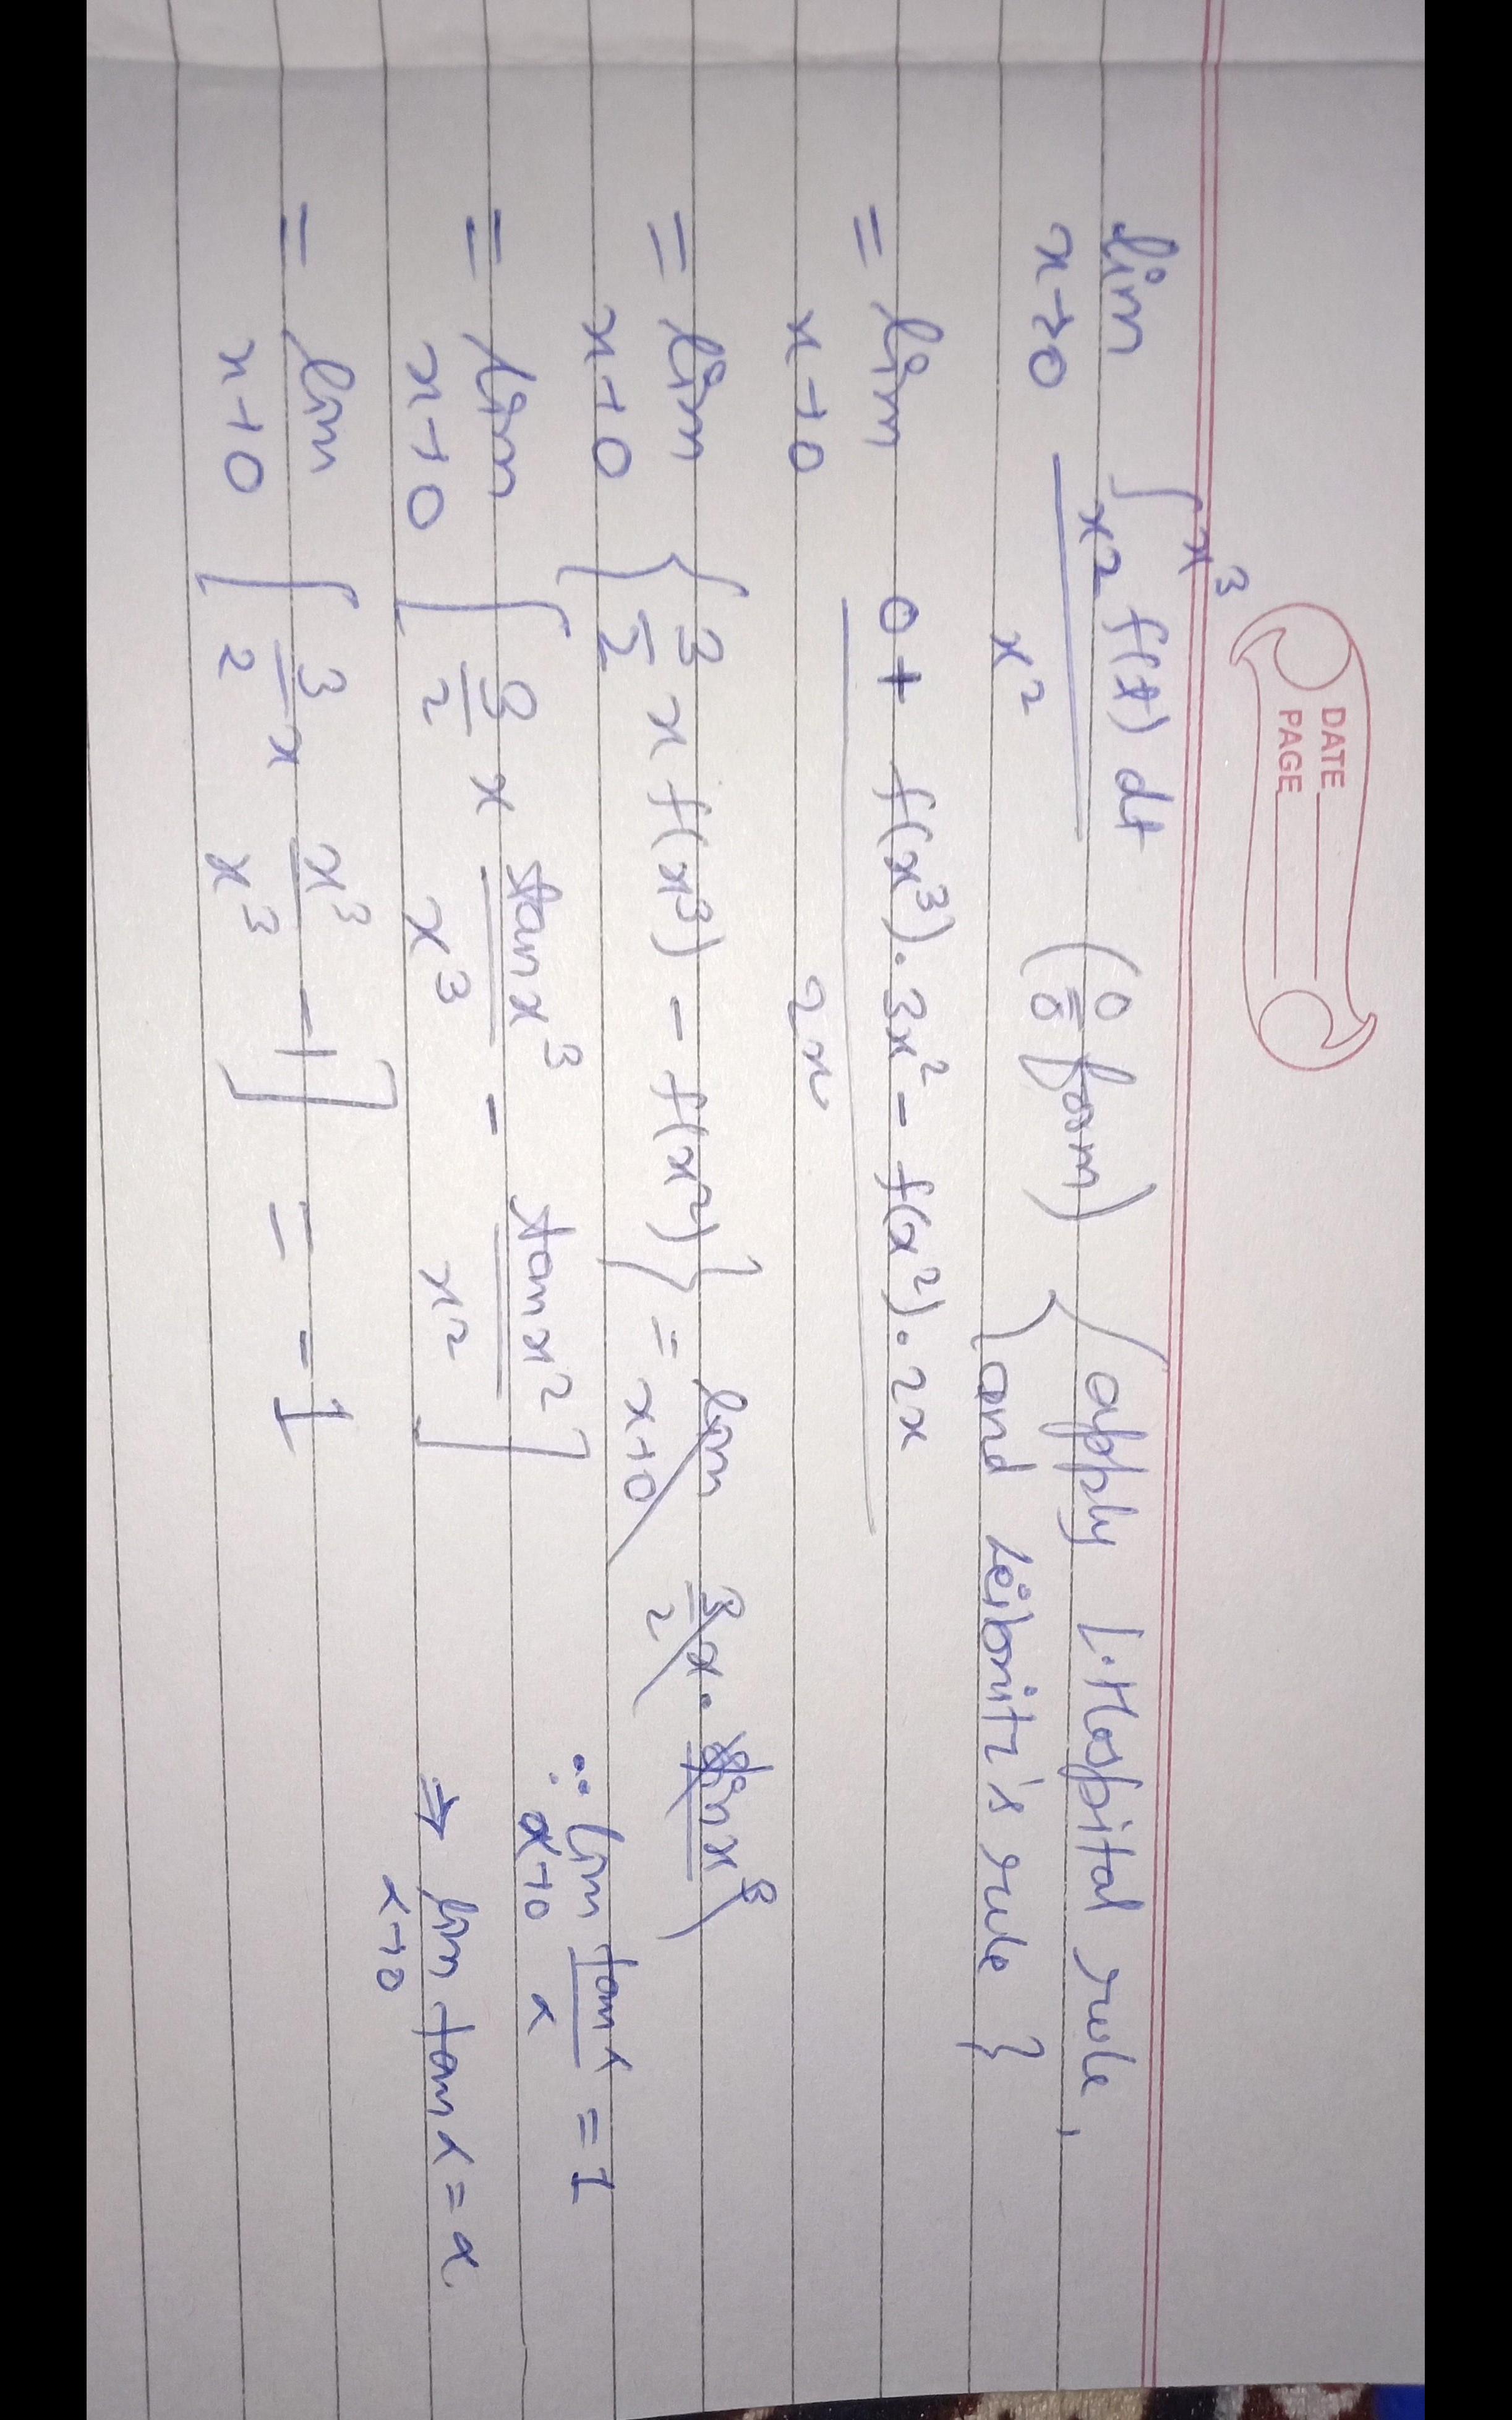 DATE
PAGE
lim x→0 ∫_{x²}^{x³} f(t) dt / x² (0/0 form) { apply L·Hospital rule,
and Leibnitz's rule }
= lim x→0 (0 + f(x³)·3x² - f(x²)·2x) / 2x
= lim x→0 { 3/2 x f(x³) - f(x²) } = lim x→0 3/2 x · sin x³
= lim x→0 [ 3/2 x tan x³ / x³ - tan x² / x² ]
∵ lim α→0 tan α / α = 1
⇒ lim α→0 tan α = α
= lim x→0 [ 3/2 x x³/x³ - 1 ] = -1